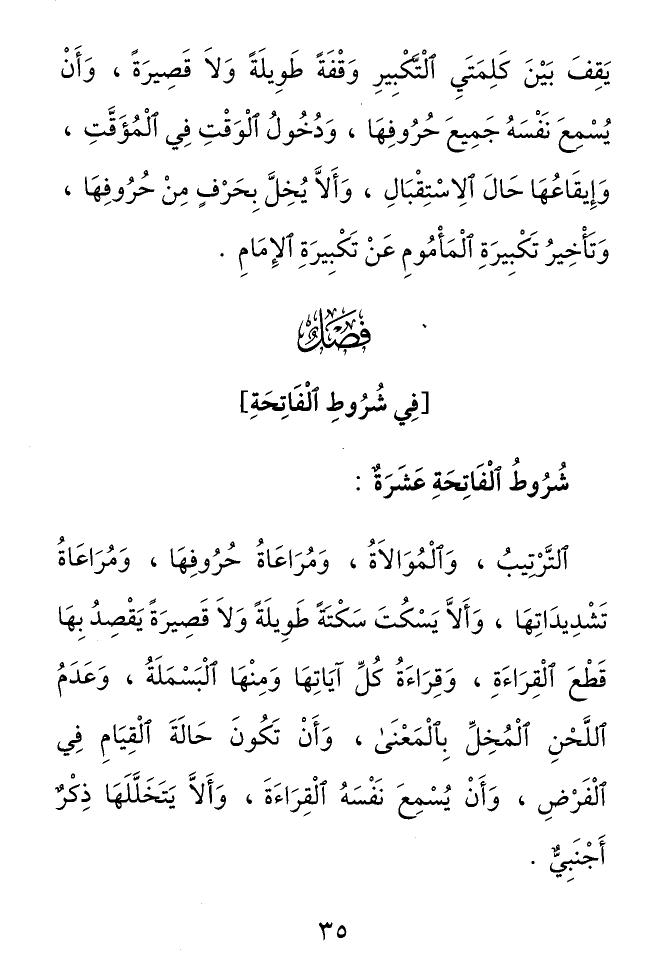 يَقِفَ بَيْنَ كَلِمَتَيِ ٱلتَّكْبِيرِ وَقْفَةً طَوِيلَةً وَلاَ قَصِيرَةً ، وَأَنْ
يُسْمِعَ نَفْسَهُ جَمِيعَ حُرُوفِهَا ، وَدُخُولُ ٱلْوَقْتِ فِي ٱلْمُؤَقَّتِ ،
وَإِيقَاعُهَا حَالَ ٱلِاسْتِقْبَالِ ، وَأَلاَّ يُخِلَّ بِحَرْفٍ مِنْ حُرُوفِهَا ،
وَتَأْخِيرُ تَكْبِيرَةِ ٱلْمَأْمُومِ عَنْ تَكْبِيرَةِ ٱلإِمَامِ .
فَصْلٌ
[فِي شُرُوطِ ٱلْفَاتِحَةِ]
شُرُوطُ ٱلْفَاتِحَةِ عَشَرَةٌ :
ٱلتَّرْتِيبُ ، وَٱلْمُوَالاَةُ ، وَمُرَاعَاةُ حُرُوفِهَا ، وَمُرَاعَاةُ
تَشْدِيدَاتِهَا ، وَأَلاَّ يَسْكُتَ سَكْتَةً طَوِيلَةً وَلاَ قَصِيرَةً يَقْصِدُ بِهَا
قَطْعَ ٱلْقِرَاءَةِ ، وَقِرَاءَةُ كُلِّ آيَاتِهَا وَمِنْهَا ٱلْبَسْمَلَةُ ، وَعَدَمُ
ٱللَّحْنِ ٱلْمُخِلِّ بِٱلْمَعْنَىٰ ، وَأَنْ تَكُونَ حَالَةَ ٱلْقِيَامِ فِي
ٱلْفَرْضِ ، وَأَنْ يُسْمِعَ نَفْسَهُ ٱلْقِرَاءَةَ ، وَأَلاَّ يَتَخَلَّلَهَا ذِكْرٌ
أَجْنَبِيٌّ .
٣٥